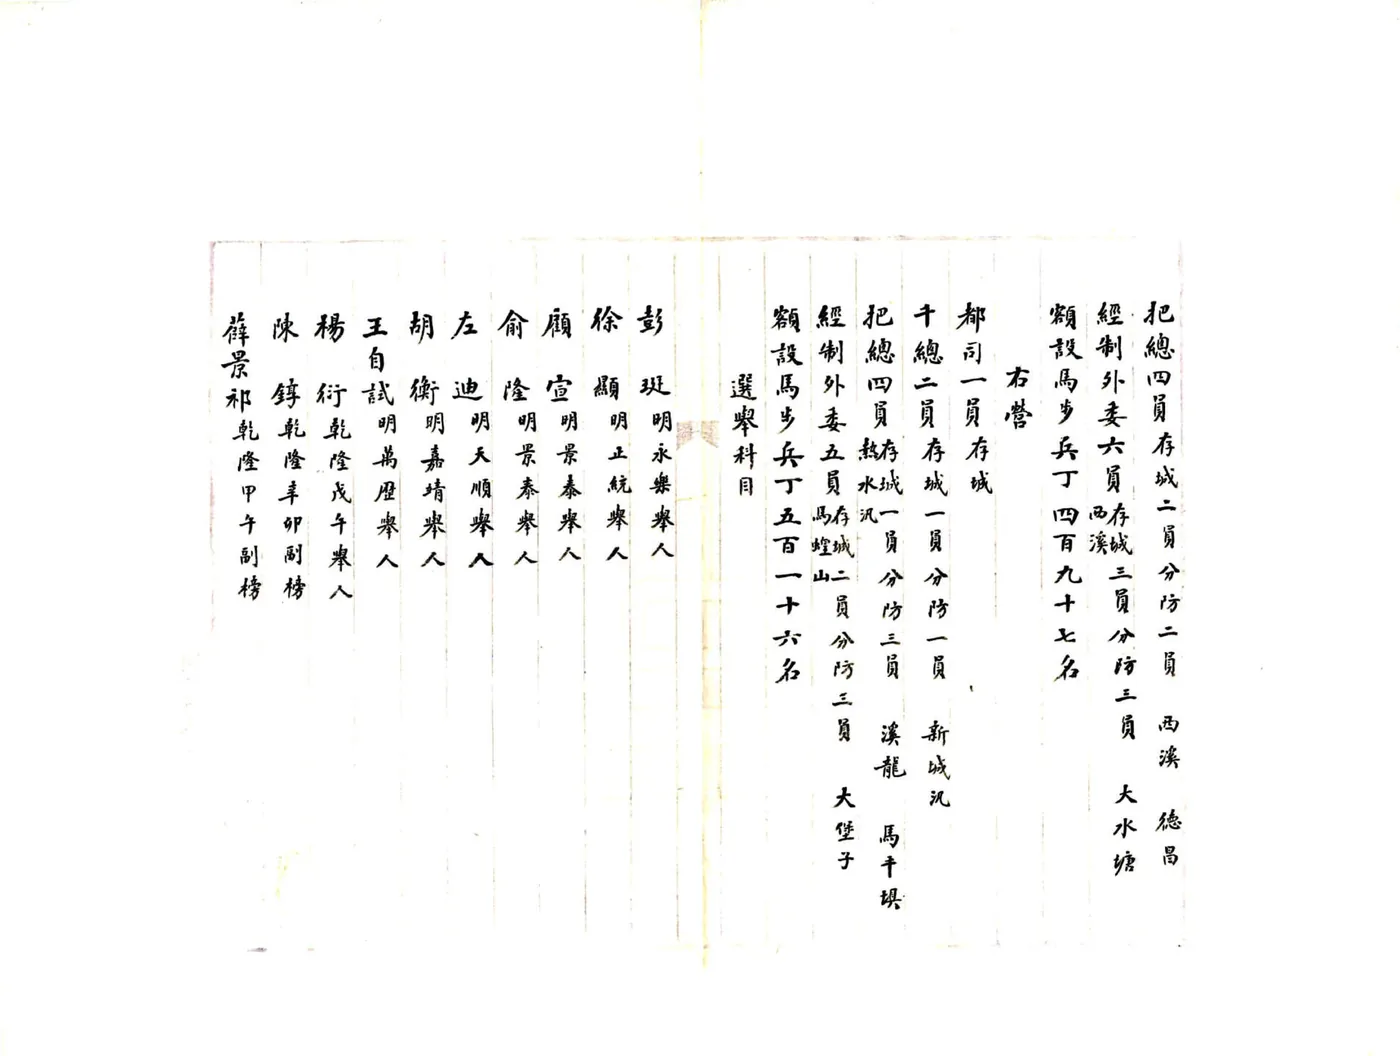 把總四員存城二員分防二員　西溪　德昌
經制外委六員存城三員分防三員　大水塘
西溪
額設馬步兵丁四百九十七名
右營
都司一員存城
千總二員存城一員分防一員　新城汛
把總四員存城一員分防三員　溪龍　馬平埧
熱水汛
經制外委五員存城二員分防三員　大堡子
馬蝗山
額設馬步兵丁五百一十六名
選舉科目
彭珽明永樂舉人
徐顯明正統舉人
顧宣明景泰舉人
俞隆明景泰舉人
左迪明天順舉人
胡衡明嘉靖舉人
王自試明萬歷舉人
楊衍乾隆戊午舉人
陳錞乾隆辛卯副榜
薛景祁乾隆甲午副榜